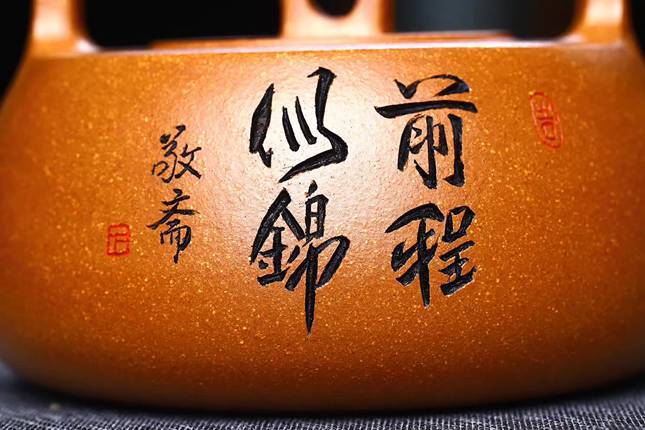 前程
似錦
敬斋